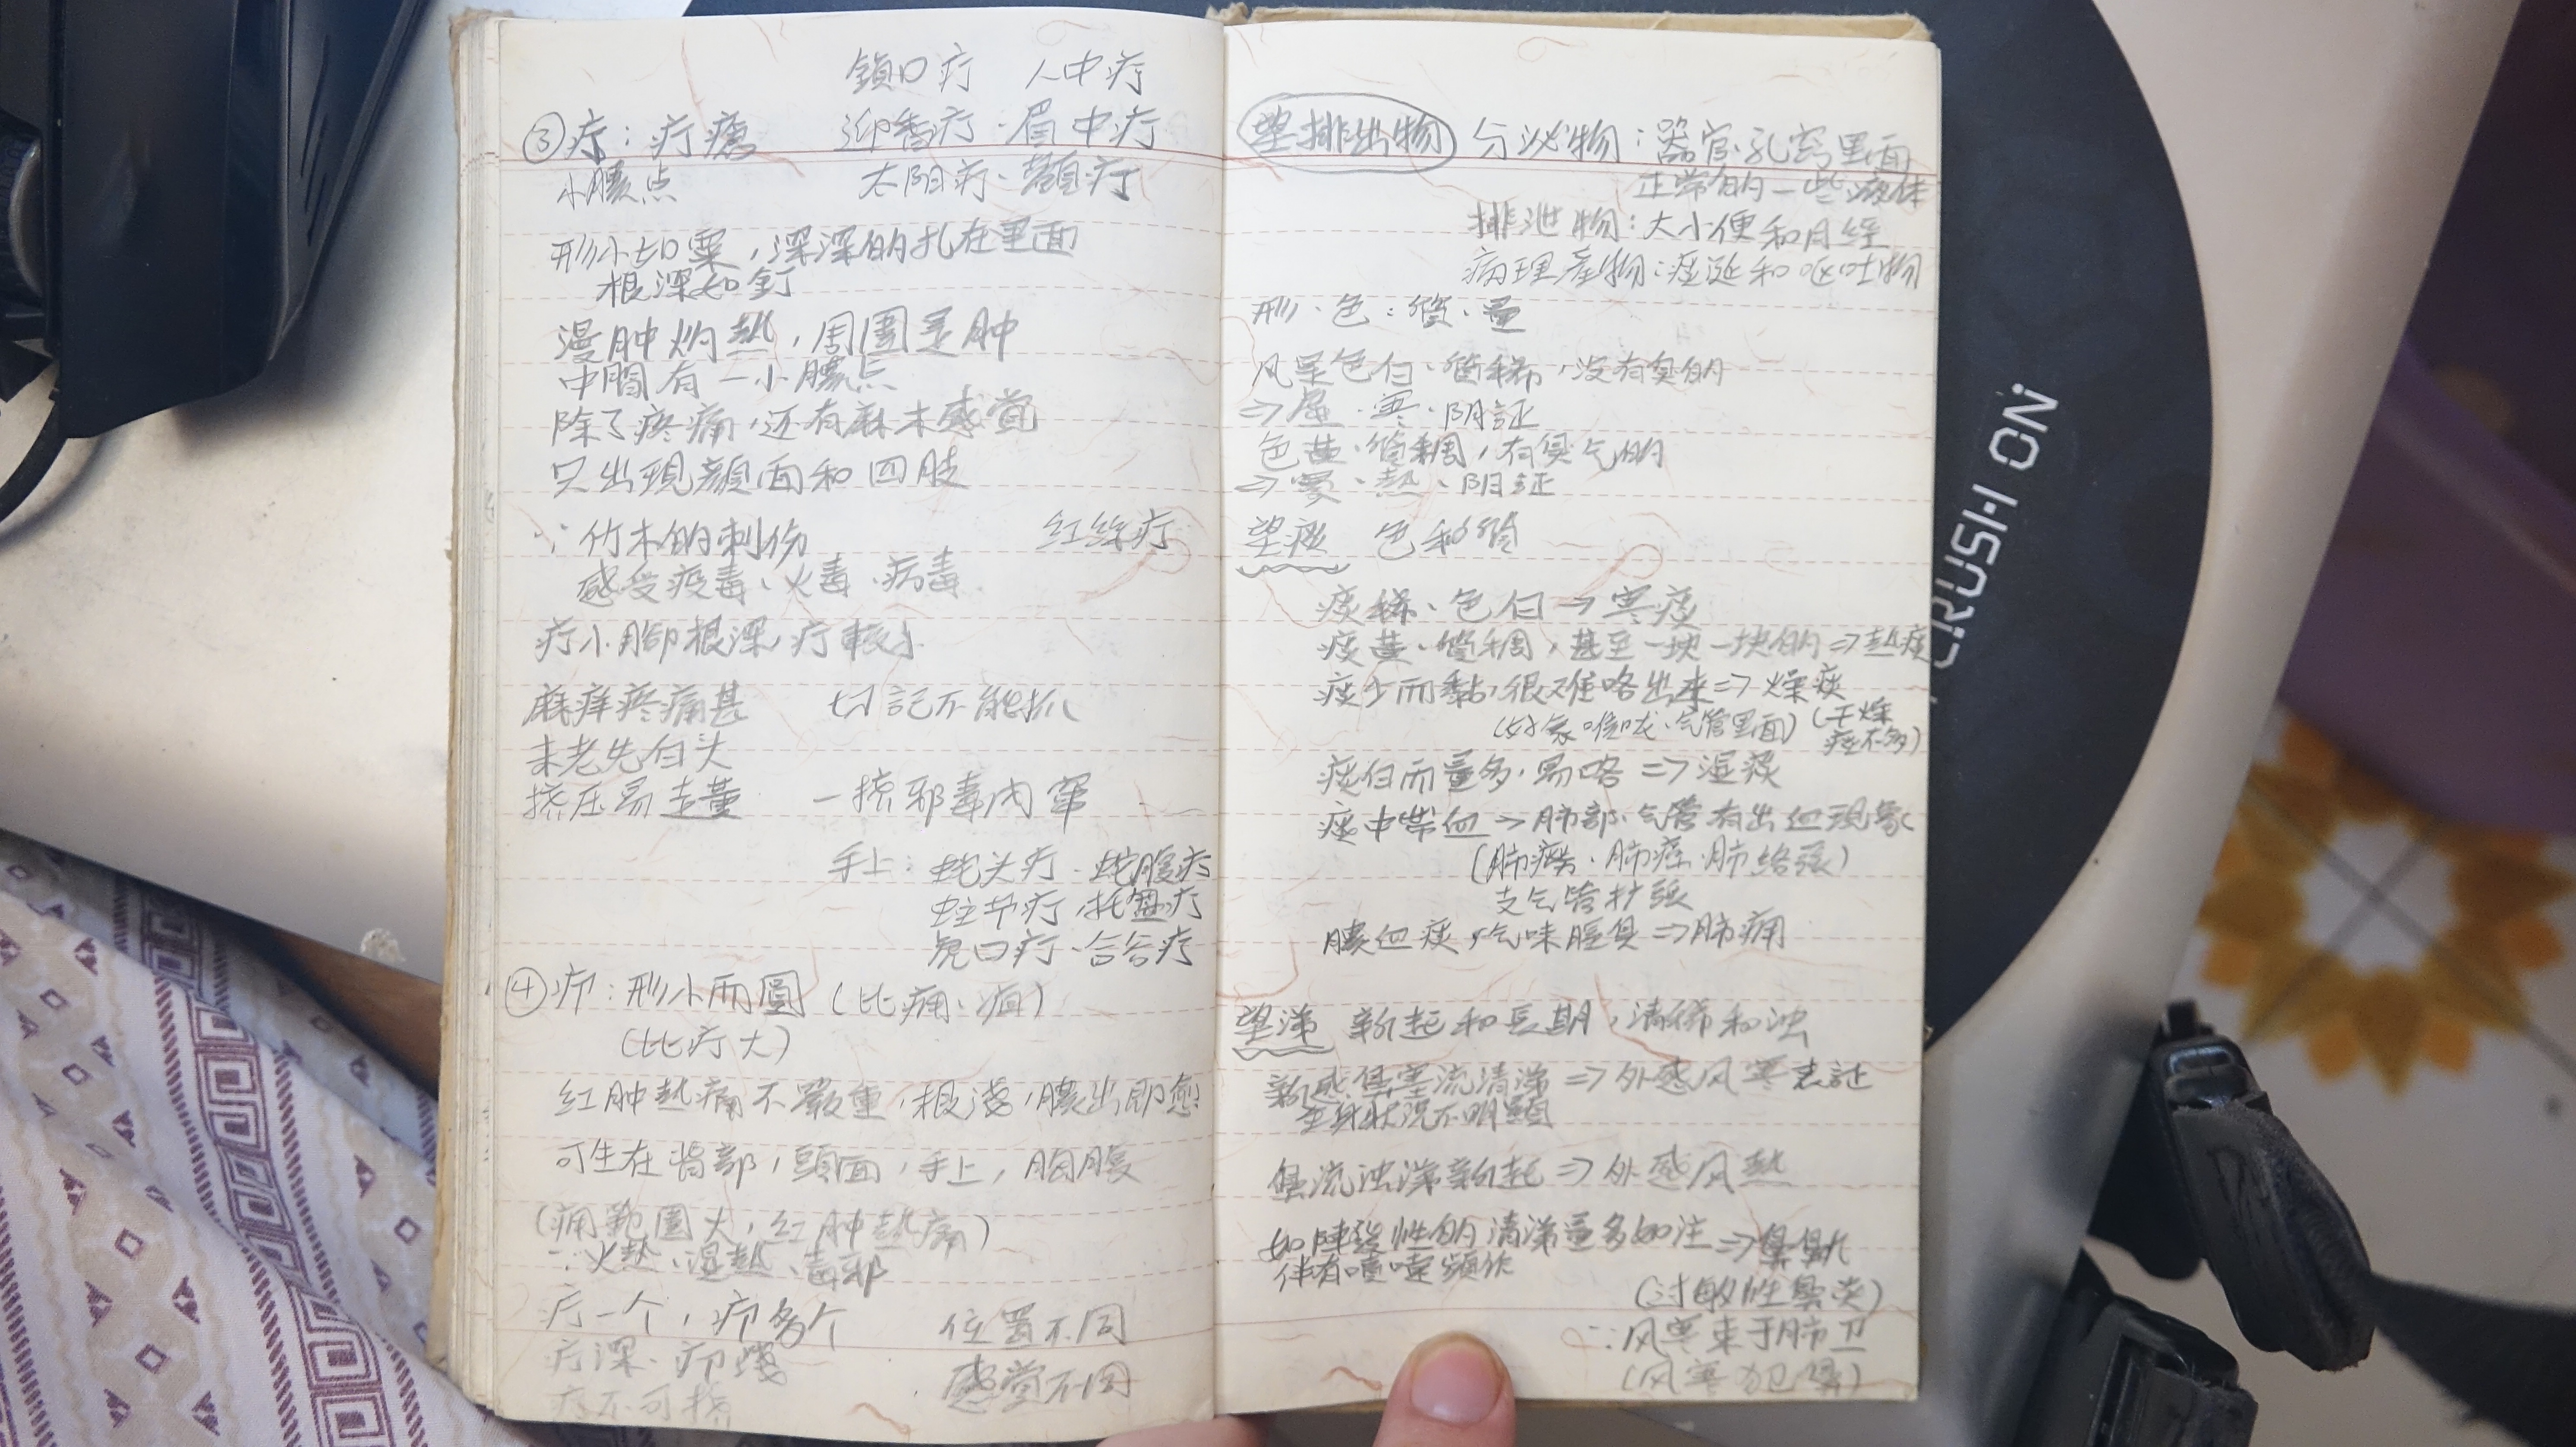 鎖口疔 人中疔
③疔：疔瘡 迎香疔、眉中疔
小膿点 太阳疔、顴疔
形小如粟，深深的扎在里面
根深如釘
漫肿灼熱，周圍是肿
中間有一小膿点
除了疼痛，还有麻木感覚
只出現顔面和四肢
∵竹木的刺伤 红絲疔
感受疫毒、火毒、病毒
疔小脚根深，疔較小
麻痒疼痛甚 切記不能抓
未老先白头
挤压易走黄 一挤邪毒内窜
手上：蛇头疔、蛇腹疔
蛀节疔，托盤疔
虎口疔、合谷疔
④疖：形小而圓（比痈、疽）
（比疔大）
红肿熱痛不嚴重，根淺，膿出即愈
可生在背部，頭面，手上，胸腹
（痈範圍大，红肿熱痛）
∵火热、湿热、毒邪
疔一个，疖多个 位置不同
疔深、疖淺 感覚不同
疔不可挤
望排出物 分泌物：器官、孔窍里面
正常的一些液体
排泄物：大小便和月經
病理産物：痰涎和呕吐物
形、色：質、量
凡是色白、質稀，没有臭的
⇒虚、寒、阴証
色黄、質稠，有臭气的
⇒実、熱、阳証
望痰 色和質
痰稀、色白→寒痰
痰黄、質稠，甚至一块一块的⇒热痰
痰少而黏，很难咯出来⇒燥痰
（好象喉咙、气管里面）（干燥
痰不多）
痰白而量多，易咯⇒湿痰
痰中带血→肺部、气管有出血現象
（肺癆、肺癌、肺络張）
支气管扩張
膿血痰，气味腥臭⇒肺痈
望涕 新起和長期，清稀和浊
新感鼻塞流清涕⇒外感风寒表証
全身状况不明顯
鼻流浊涕新起⇒外感风热
如陣發性的清涕量多如注⇒鼻鼽
伴有嚏嚏頻作
（过敏性鼻炎）
∵风寒束于肺卫